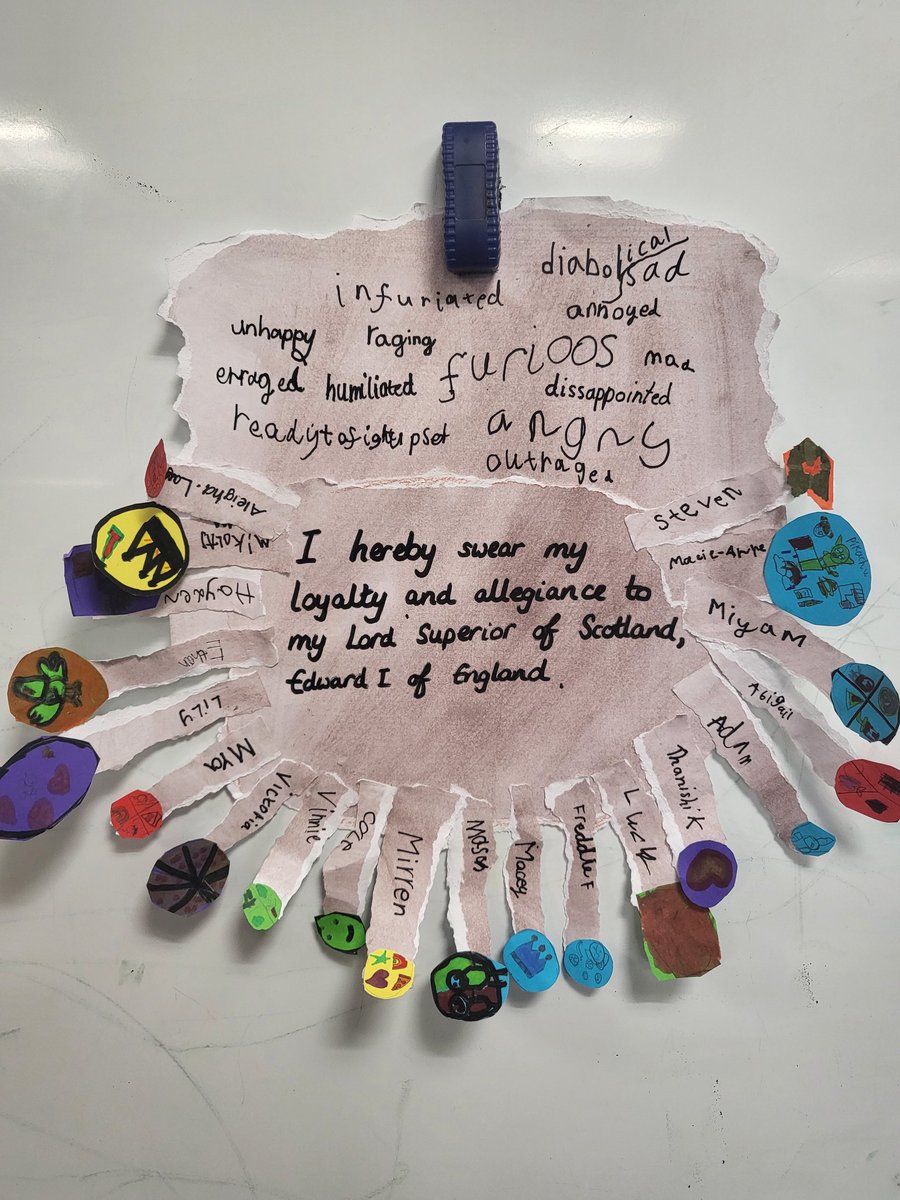 diabolical
sad
infuriated
annoyed
unhappy
raging
furioos
mad
enraged
humiliated
dissappointed
readytofight
upset
angry
outraged
I hereby swear my
loyalty and allegiance to
my Lord Superior of Scotland,
Edward I of England.
Aleigha.
Hayden
Ethan
Lily
Mya
Victoria
Vinnie
Cole
Mirren
Mason
Macey
Freddie F
Lucy
Thanishik
Adam
Abigail
Miyam
Steven